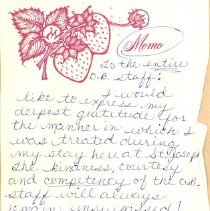 Memo
To the entire
O.B. staff:
I would
like to express my
deepest gratitude for
the manner in which I
was treated during
my stay here at St. Joseph
The kindness, courtesy
and competency of the O.B.
staff will always
remain unsurpassed!